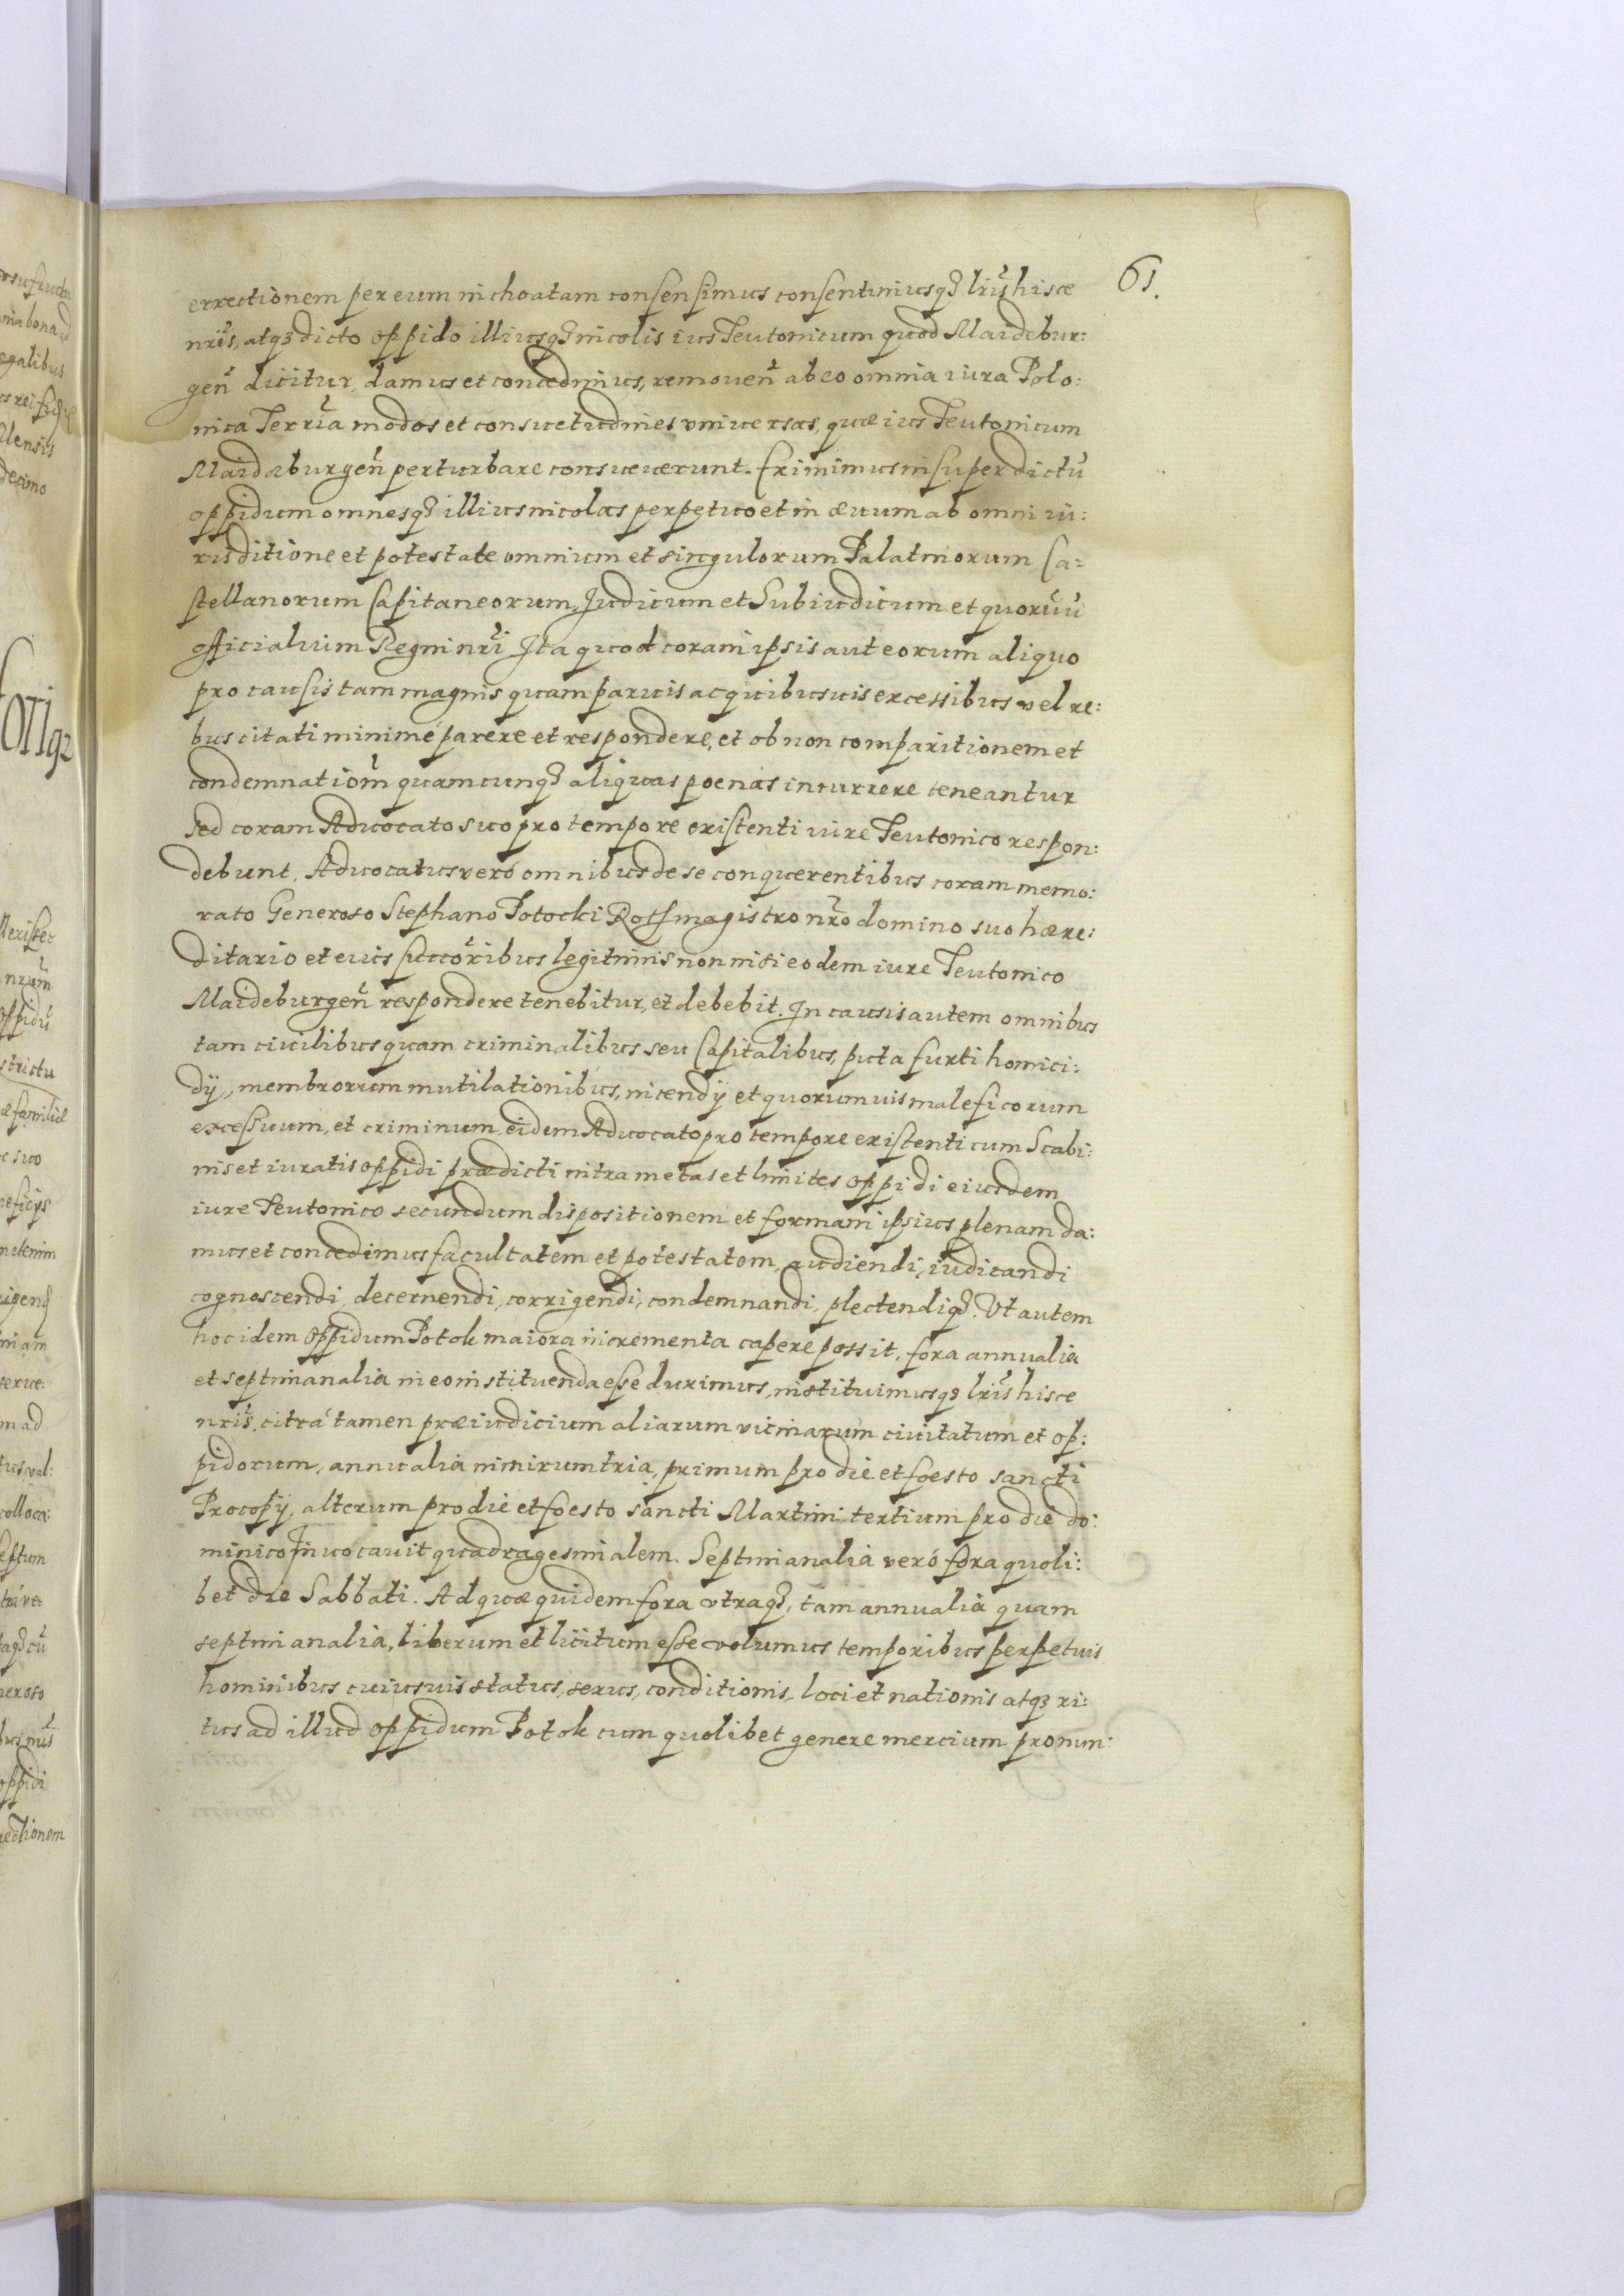 61.
errectionem per eum inchoatam consensimus consentimusq3 lr̃is hisce
nr̃is, atq3 dicto oppido illiusq3 incolis ius Teutonicum quod Maidebur:
geñ dicitur, damus et concedimus, removeñ ab eo omnia iura Polo:
nica Terrr̃ia modos et consuetudines vniuersas, quæ ius Teutonicum
Maideburgeñ perturbare consueuerunt. Eximimus insuper dictũ
oppidum omnesq3 illius incolas perpetuo et in æuum ab omni iu:
risditione et potestate omnium et singulorum Palatinorum Ca=
stellanorum Capitaneorum, Judicum et Subiudicum et quorũvũ
officialium Regni nr̃i Ita quod coram ipsis aut eorum aliquo
pro causis tam magnis quam paruis ac quibusuis excessibus vel re:
bus citati minimé parere et respondere, et ob non comparitionem et
condemnatiom̃ quamcunq3 aliquas poenas incurrere teneantur
sed coram Aduocato suo pro tempore existenti iure Teutonico respon:
debunt. Aduocatus veró omnibus de se conquerentibus coram memo:
rato Generoso Stephano Potocki Rotsmagistro nr̃o domino suo hære:
ditario et eius succoribus legitimis non nisi eodem iure Teutonico
Maideburgeñ respondere tenebitur, et debebit. In causis autem omnibus
tam ciuilibus quam criminalibus seu Capitalibus, puta furti homici:
dÿ, membrorum mutilationibus, incendÿ et quorumuis maleficorum
excessuum, et criminum, eidem Aduocato pro tempore existenti cum Scabi:
nis et iuratis oppidi prædicti intra metas et limites oppidi eiusdem
iure Teutonico secundum dispositionem et formam ipsius plenam da:
mus et concedimus facultatem et potestatem, audiendi, iudicandi
cognoscendi, decernendi, corrigendi, condemnandi, plectendiq3. Vt autem
hoc idem Oppidum Potok maiora incrementa capere possit, fora annualia
et septimanalia in eo instituenda esse duximus, instituimusq3 lr̃is hisce
nr̃is, citrá tamen præiudicium aliarum vicinarum ciuitatum et op:
pidorum, annualia nimirum tria, primum pro die et foesto sancti
Procopÿ, alterum pro die et foesto sancti Martini tertium pro die do:
minico Inuocauit quadragesmialem. Septimanalia veró fora quoli:
bet die Sabbati. Ad quæ quidem fora vtraq3, tam annualia quam
septimanalia, liberum et licitum esse volumus temporibus perpetuis
hominibus cuiusuis status, sexus, conditionis, loci et nationis atq3 ri:
tus ad illud oppidum Potok cum quolibet genere mercium pronun: